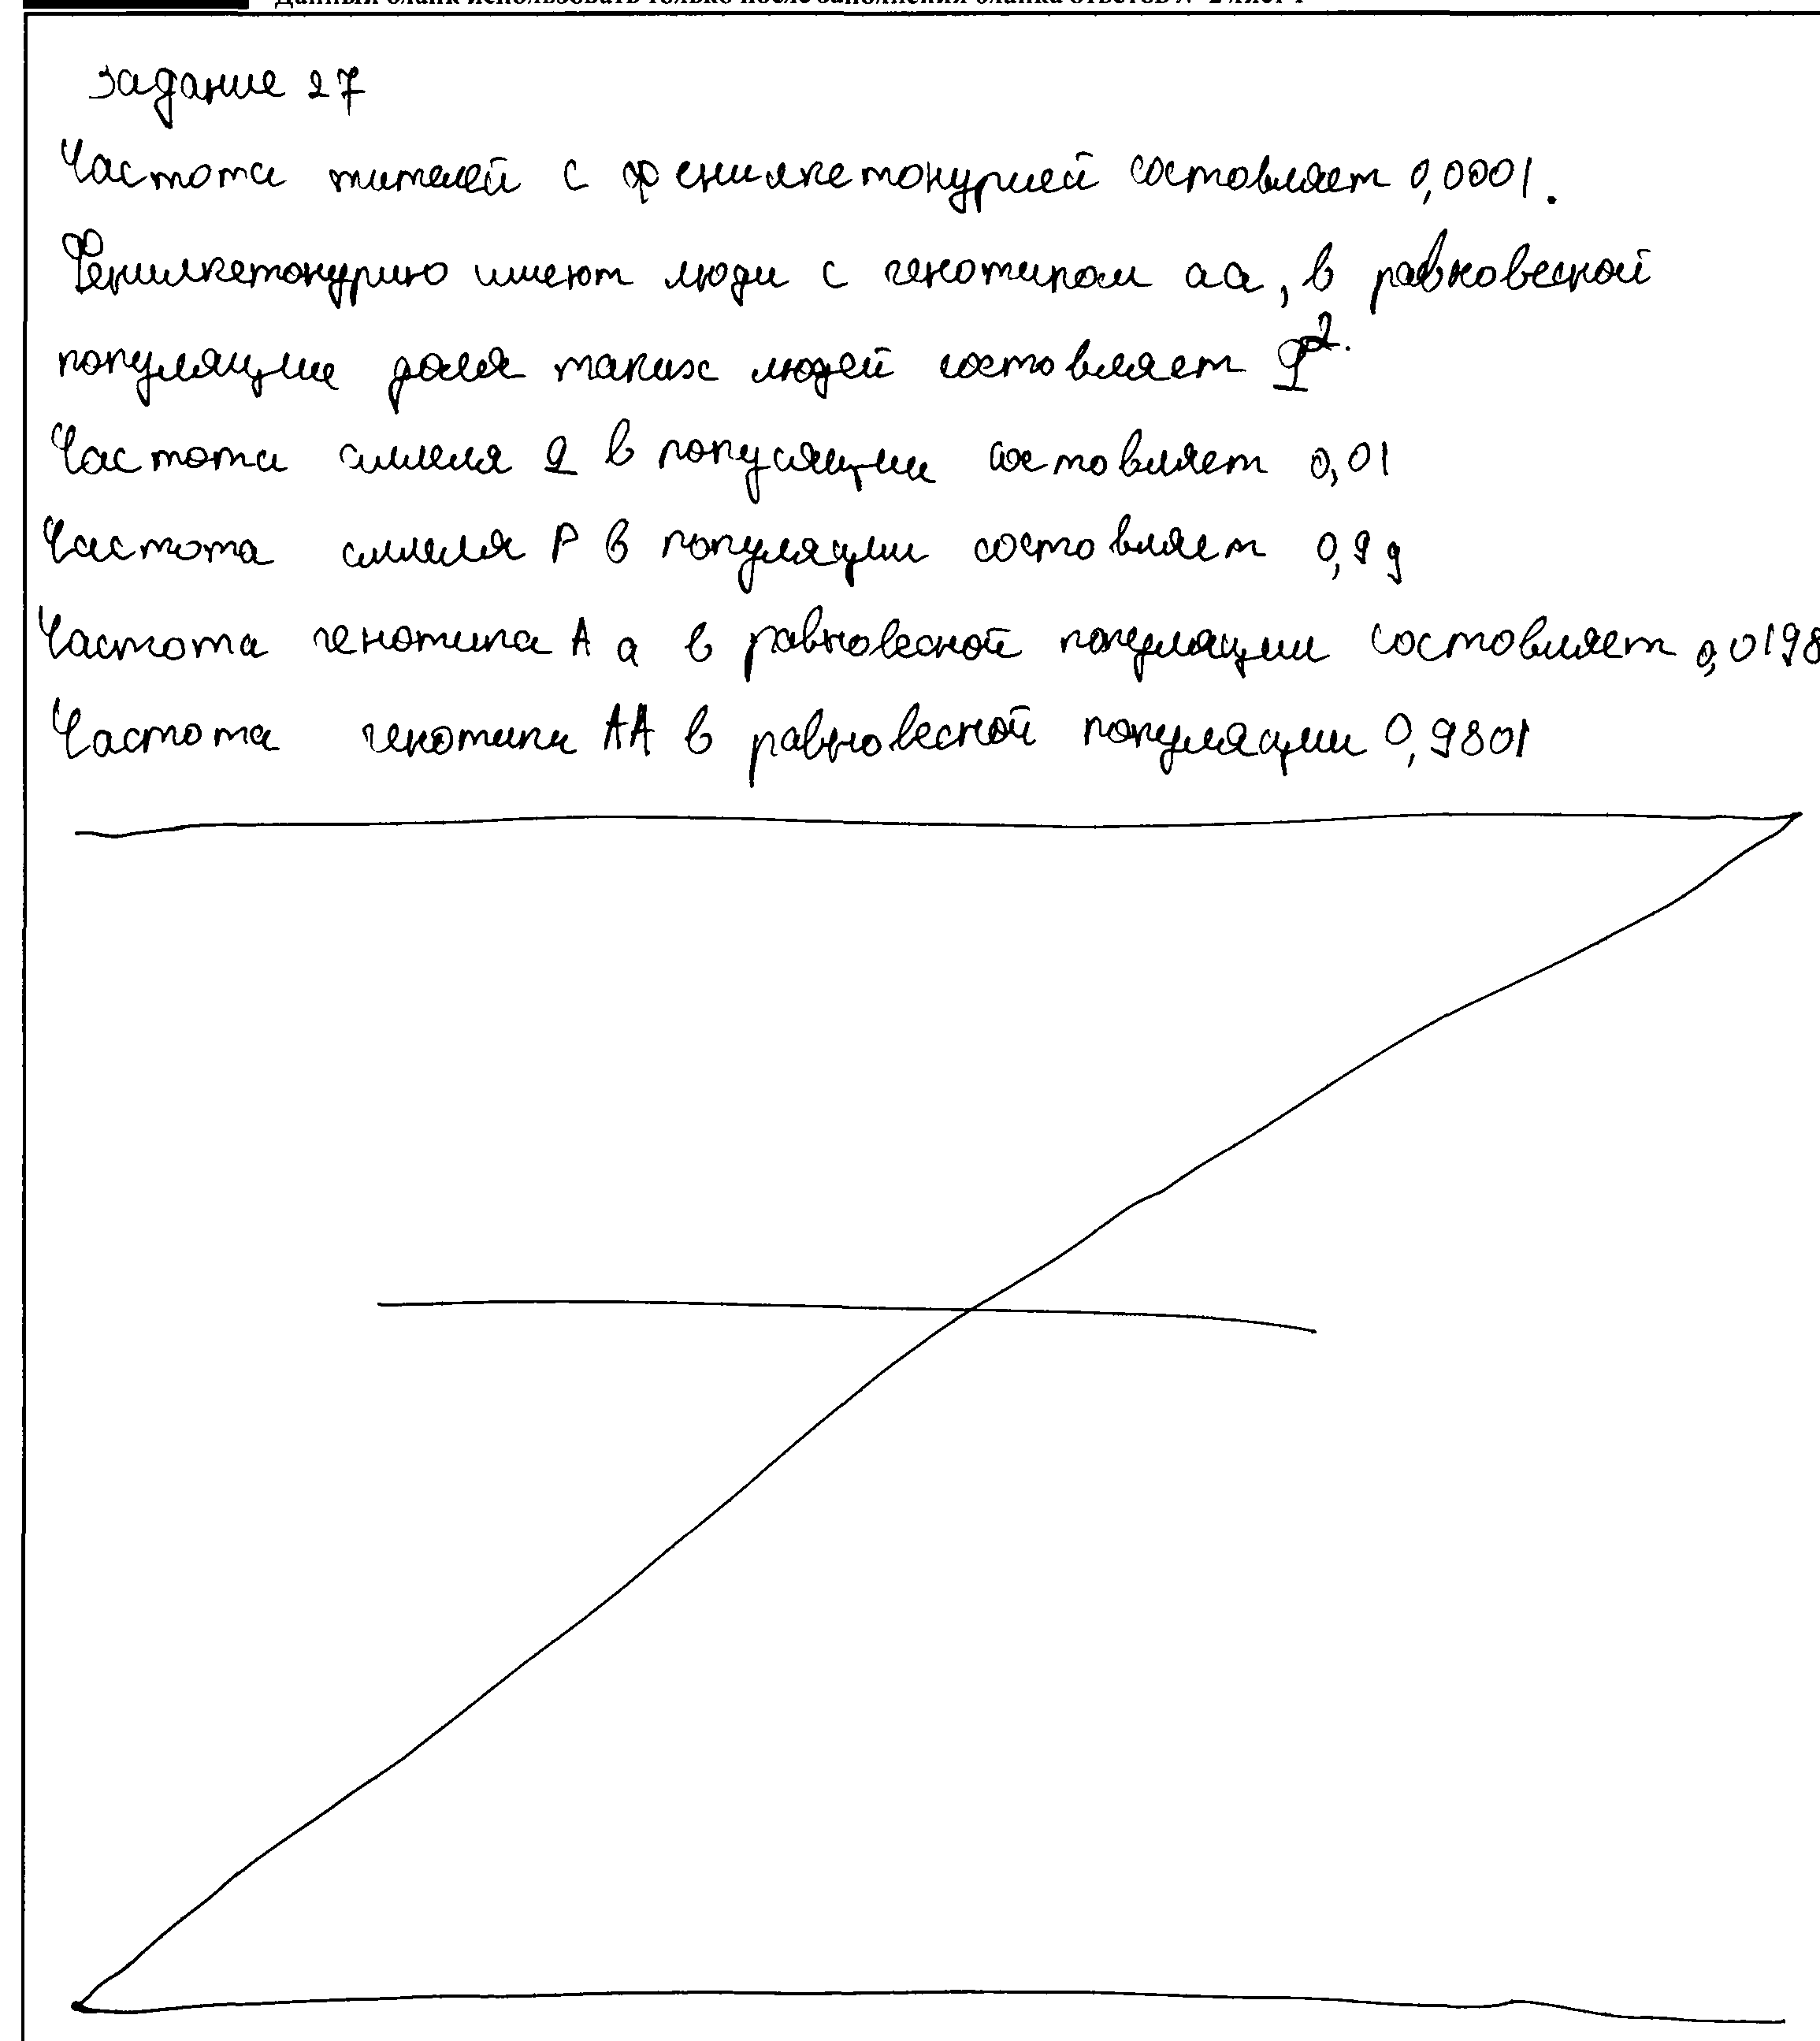 Данный бланк использовать только после заполнения бланка ответов № 2 лист 1
Задание 27
Частота жителей с фенилкетонурией состовляет 0,0001.
Фенилкетонурию имеют люди с генотипом аа, в равновесной
популяции доля таких людей состовляет q².
Частота аллеля q в популяции состовляет 0,01
Частота аллеля p в популяции состовляет 0,99
Частота генотипа Аа в равновесной популяции состовляет 0,0198
Частота генотипа АА в равновесной популяции 0,9801